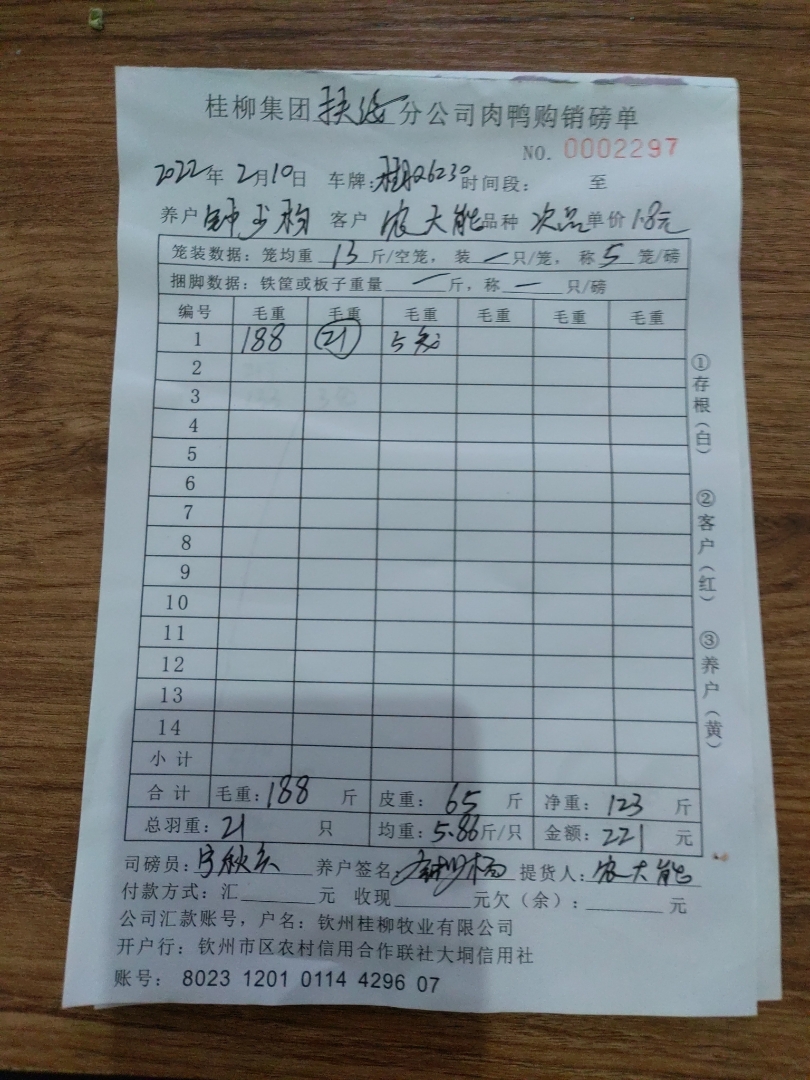 桂柳集团扶绥分公司肉鸭购销磅单
NO. 0002297
2022年2月10日 车牌: Q6230 时间段: 至
养户 钟 客户 农大能 品种 次品 单价 1.8元
笼装数据: 笼均重 13 斤/空笼, 装 一 只/笼, 称 5 笼/磅
捆脚数据: 铁筐或板子重量 一 斤, 称 一 只/磅
编号 毛重 毛重 毛重 毛重 毛重 毛重
1 188 21 5
2
3
4
5
6
7
8
9
10
11
12
13
14
小计
合计 毛重: 188 斤 皮重: 65 斤 净重: 123 斤
总羽重: 21 只 均重: 5.86 斤/只 金额: 221 元
司磅员: 养户签名: 提货人: 农大能
付款方式: 汇 元 收现 元欠(余): 元
公司汇款账号, 户名: 钦州桂柳牧业有限公司
开户行: 钦州市区农村信用合作联社大垌信用社
账号: 8023 1201 0114 4296 07
①存根(白)
②客户(红)
③养户(黄)